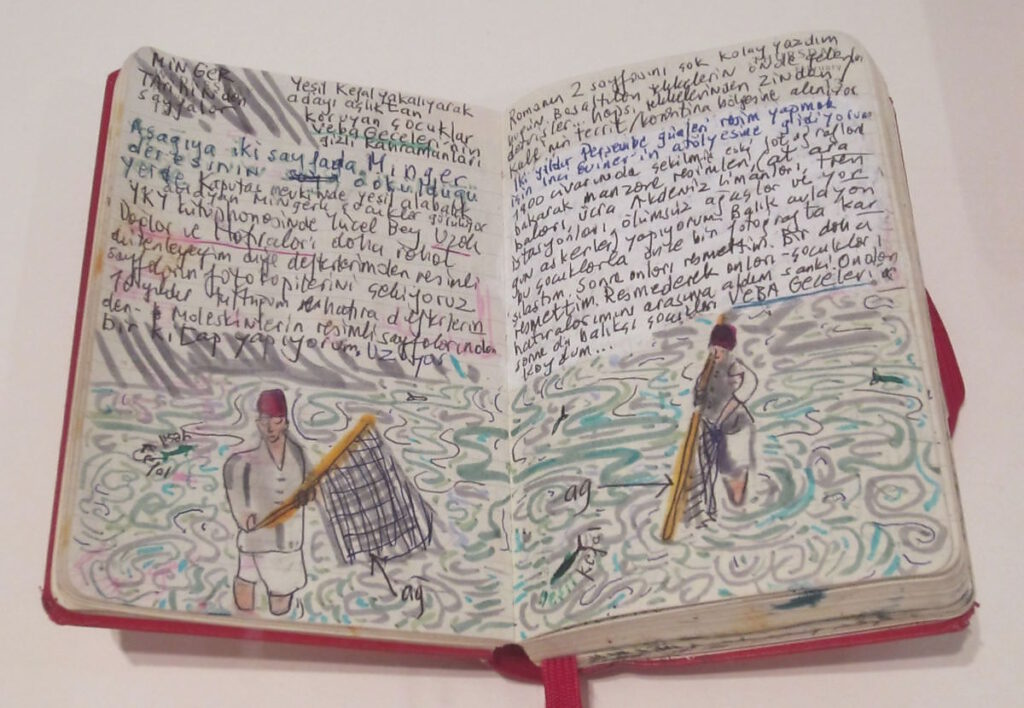 MİNGER
TARİHİNDEN
sayfalar
Yeşil Kefal yakalıyarak
adayı açlıktan
koruyan çocuklar
Veba Geceleri'nin
gizli Kahramanları
Aşağıya iki sayfada Minger
deresinin döküldüğü
yerde Kaputaş mevkiinde yeşil alabalık
avlayan Mingerli çocuklar görülüyor
YKY kütüphanesinde Yücel Bey, Uzak
Dağlar ve Hatıralar'ı daha rahat
düzenleyeyim diye defterlerimden resimli
sayfaların fotokopilerini çekiyoruz
tuttuğum hatıra defterlerin
den - Moleskinlerin resimli sayfalarından
bir kitap yapıyorum. Uzak
Romanın 2 sayfasını çok kolay yazdım
bugün. Boşaltılan tekkelerin önde gelenleri
dervişler.. hapis Zindan/
Kale'nin tecrit/karantina bölgesine alınıyor
İki yıldır perşembe günleri resim yapmak
için İnci Eviner'in atölyesine gidiyorum
1900 civarında çekilmiş eski fotoğraflara
bakarak manzara resimleri (at ara
baları, ücra Akdeniz limanları, tren
istasyonları, ölümsüz ağaçlar ve yor
gun askerler) yapıyorum. Balık avlayan
bu çocuklarla öyle bir fotoğrafta kar
şılaştım. Sonra onları resmettim. Bir daha
resmettim. Resmederek onları - çocukları
hatıralarımın arasına aldım sanki. Ondan
sonra da balıkçı çocukları VEBA GECELERİ'ne
koydum...
Kefal
ağ
ağ
kefal